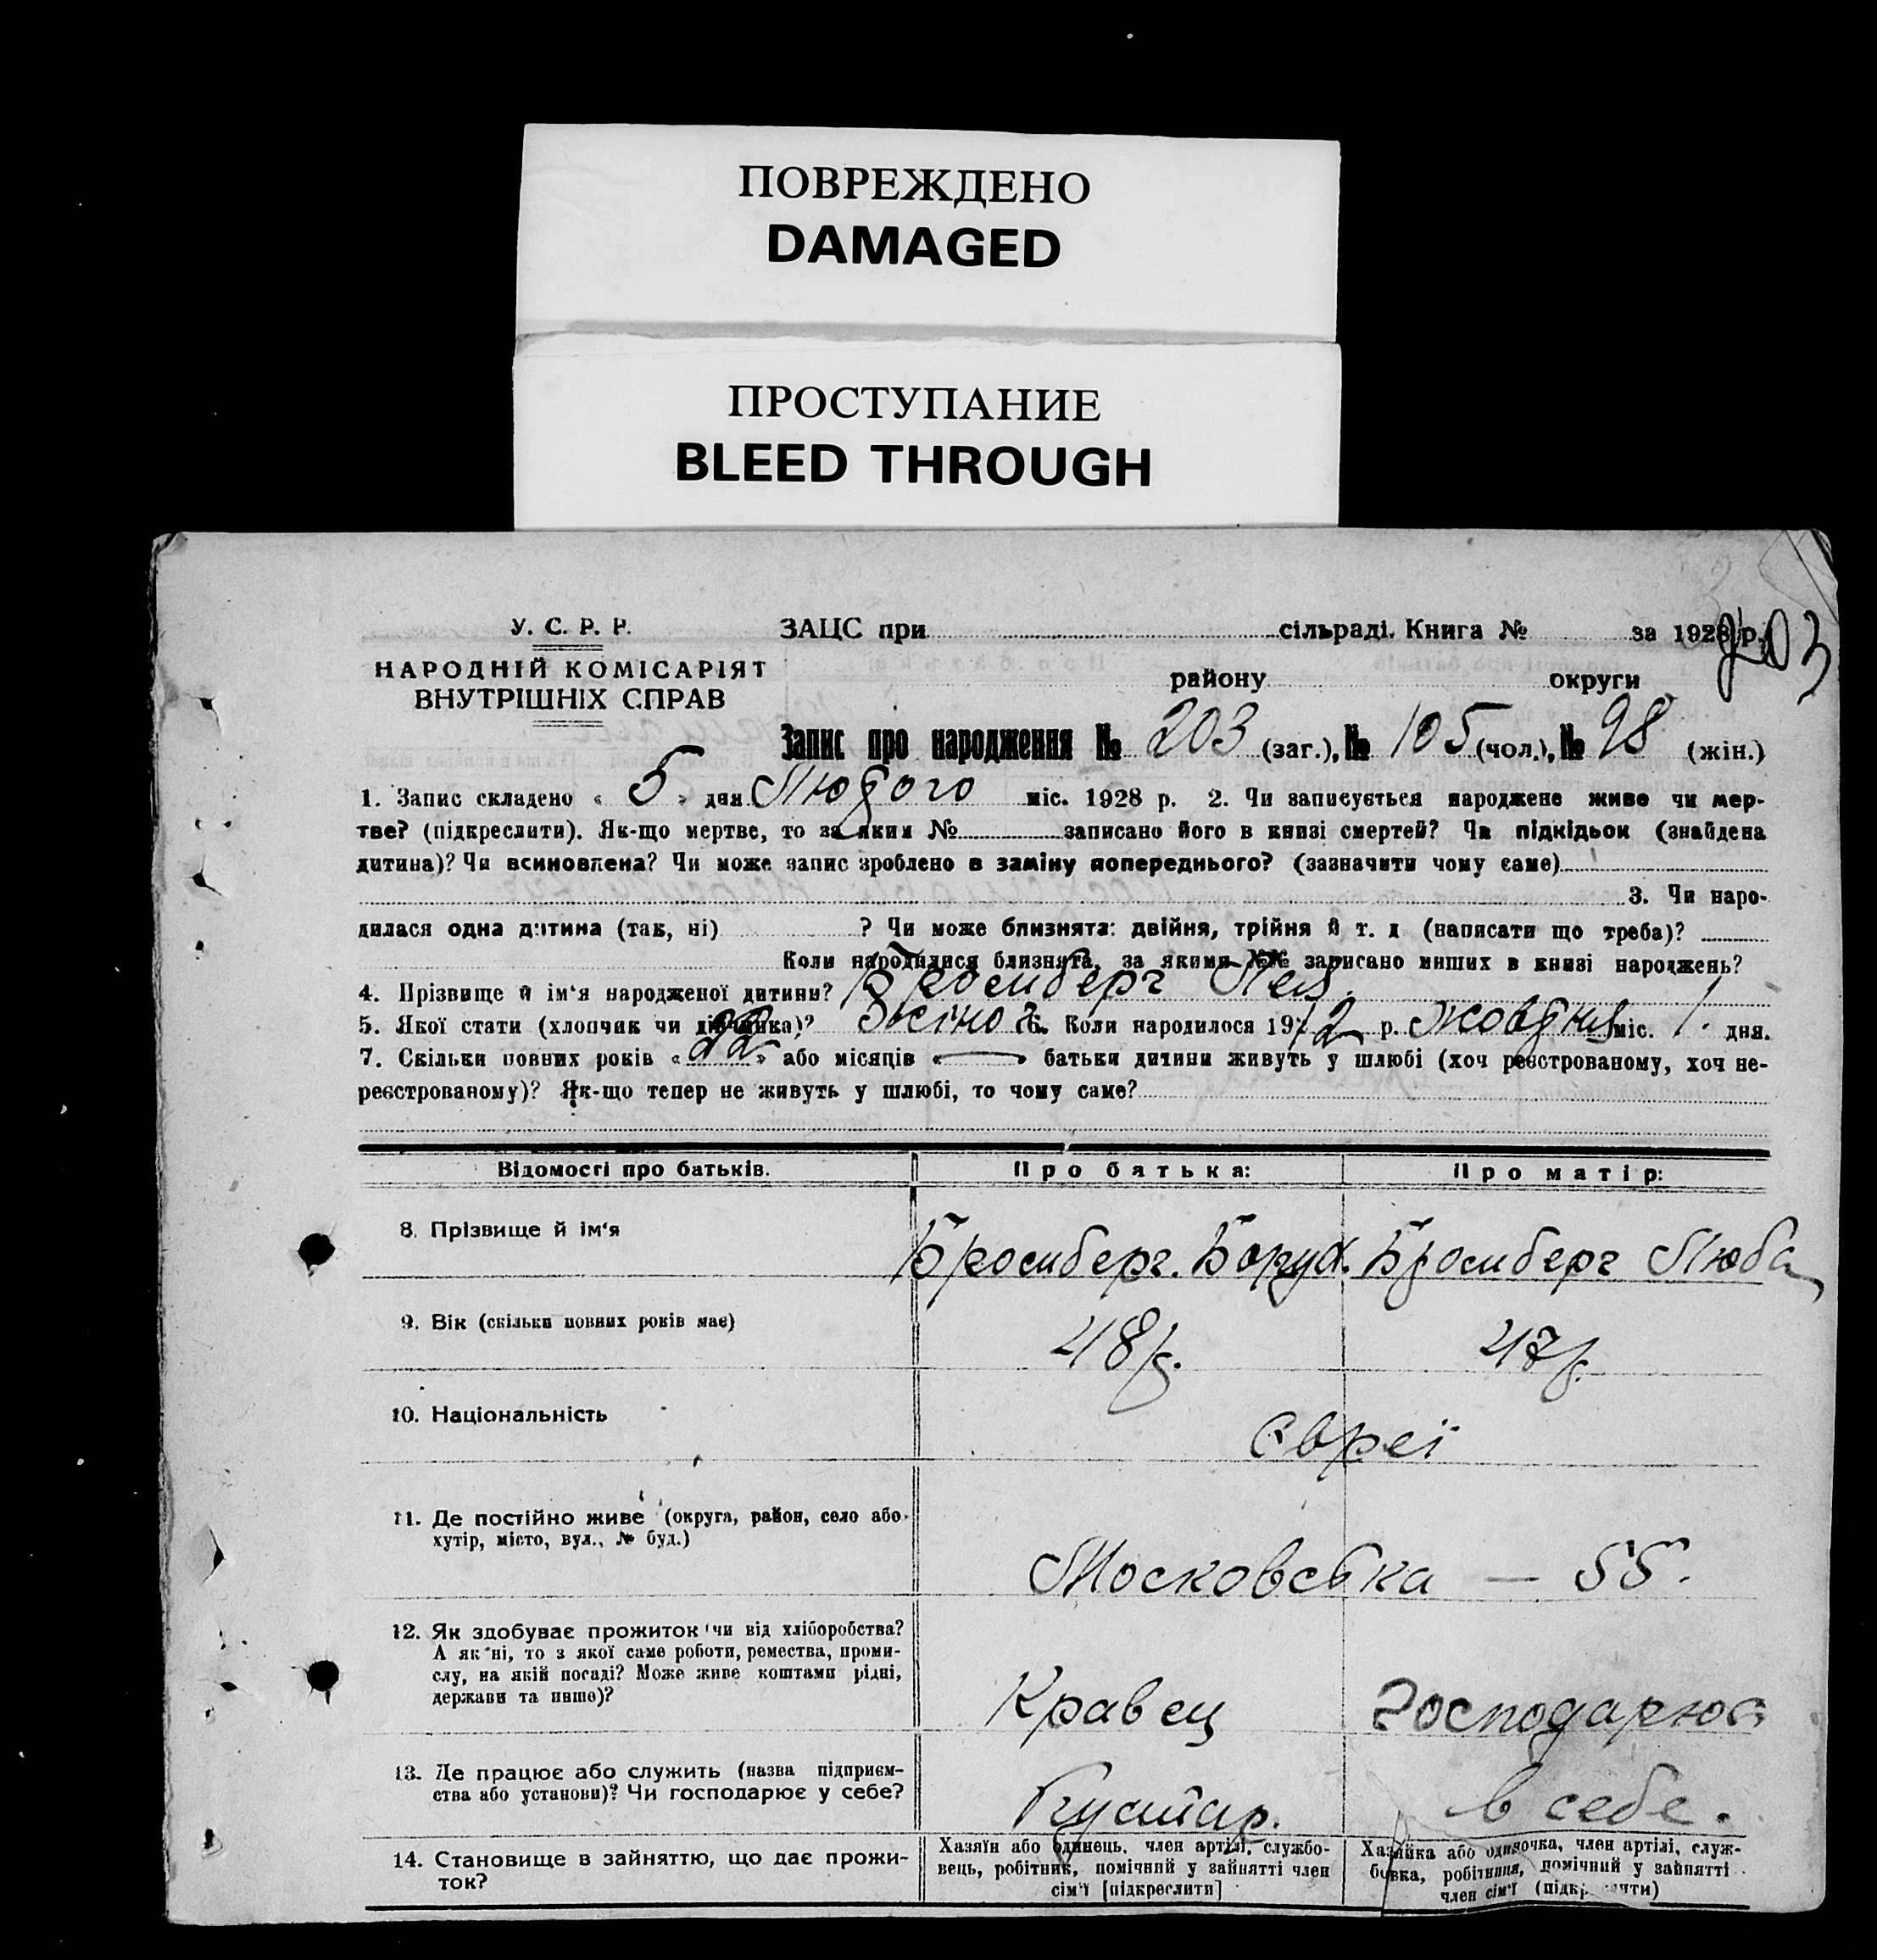 ПОВРЕЖДЕНО
DAMAGED
ПРОСТУПАНИЕ
BLEED THROUGH
У. С. Р. Р. ЗАЦС при сільраді. Книга № за 1928 р. 203
НАРОДНІЙ КОМІСАРІЯТ району округи
ВНУТРІШНІХ СПРАВ
Запис про народження № 203 (заг.), № 105 (чол.), № 98 (жін.)
1. Запис складено « 5 » дня Лютого міс. 1928 р. 2. Чи записується народжене живе чи мер-
тве? (підкреслити). Як-що мертве, то за яким № записано його в книзі смертей? Чи підкідьок (знайдена
дитина)? Чи всиновлена? Чи може запис зроблено в заміну попереднього? (зазначити чому саме)
3. Чи наро-
дилася одна дитина (так, ні) ? Чи може близнята: двійня, трійня й т. д (написати що треба)?
Коли народилися близнята, за якими №№ записано инших в книзі народжень?
4. Прізвище й ім'я народженої дитини? Бромберг Лея.
5. Якої стати (хлопчик чи дівчинка)? Жіноч. 6. Коли народилося 1912 р. Жовтня міс. 1. дня.
7. Скільки повних років « 22 » або місяців « — » батьки дитини живуть у шлюбі (хоч реєстрованому, хоч не-
реєстрованому)? Як-що тепер не живуть у шлюбі, то чому саме?
Відомості про батьків. Про батька: Про матір:
8. Прізвище й ім'я Бромберг. Борух. Бромберг Люба
9. Вік (скільки повних років має) 48 р. 47 р.
10. Національність Євреї
11. Де постійно живе (округа, район, село або
хутір, місто, вул., № буд.)
Московська — 55.
12. Як здобуває прожиток (чи від хліборобства?
А як ні, то з якої саме роботи, ремества, проми-
слу, на якій посаді? Може живе коштами рідні,
держави та инше)?
Кравец Господарює
13. Де працює або служить (назва підприєм-
ства або установи)? Чи господарює у себе?
Кустар. в себе.
14. Становище в зайняттю, що дає прожи-
ток?
Хазяїн або одинець, член артілі, службо-
вець, робітник, помічний у зайнятті член
сім'ї [підкреслити]
Хазяйка або одиночка, член артілі, служ-
бовка, робітниця, помічний у зайнятті
член сім'ї (підкреслити)